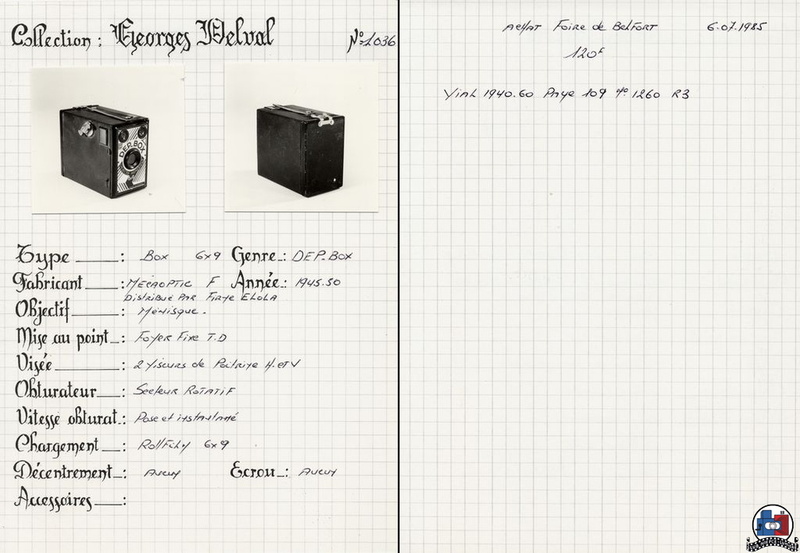 Collection : Georges Delval N° 1036
DEP. BOX
Type : Box 6x9 Genre : DEP. BOX
Fabricant : MECAOPTIC F Année : 1945.50
Distribué PAR Firme ELOLA
Objectif : Ménisque.
Mise au point : Foyer Fixe T.D
Visée : 2 Viseurs de Poitrine H. et V
Obturateur : Secteur ROTATIF
Vitesse obturat. : Pose et instantané
Chargement : Rollfilm 6x9
Décentrement : Aucun Ecrou : Aucun
Accessoires :
Achat Foire de BELFORT 6.07.1985
120F
Vial 1940.60 Page 109 n° 1260 R3